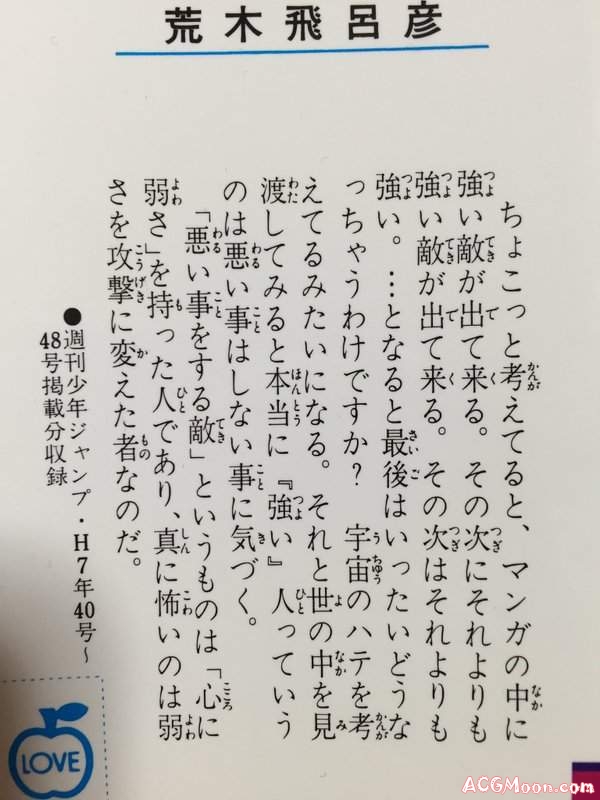 荒木飛呂彦
ちょこっと考えてると、マンガの中に
強い敵が出て来る。その次にそれよりも
強い敵が出て来る。その次はそれよりも
強い。…となると最後はいったいどうな
っちゃうわけですか？　宇宙のハテを考
えてるみたいになる。それと世の中を見
渡してみると本当に『強い』人っていう
のは悪い事はしない事に気づく。
「悪い事をする敵」というものは「心に
弱さ」を持った人であり、真に怖いのは弱
さを攻撃に変えた者なのだ。
●週刊少年ジャンプ・H7年40号～
48号掲載分収録
LOVE
ACGMoon.com